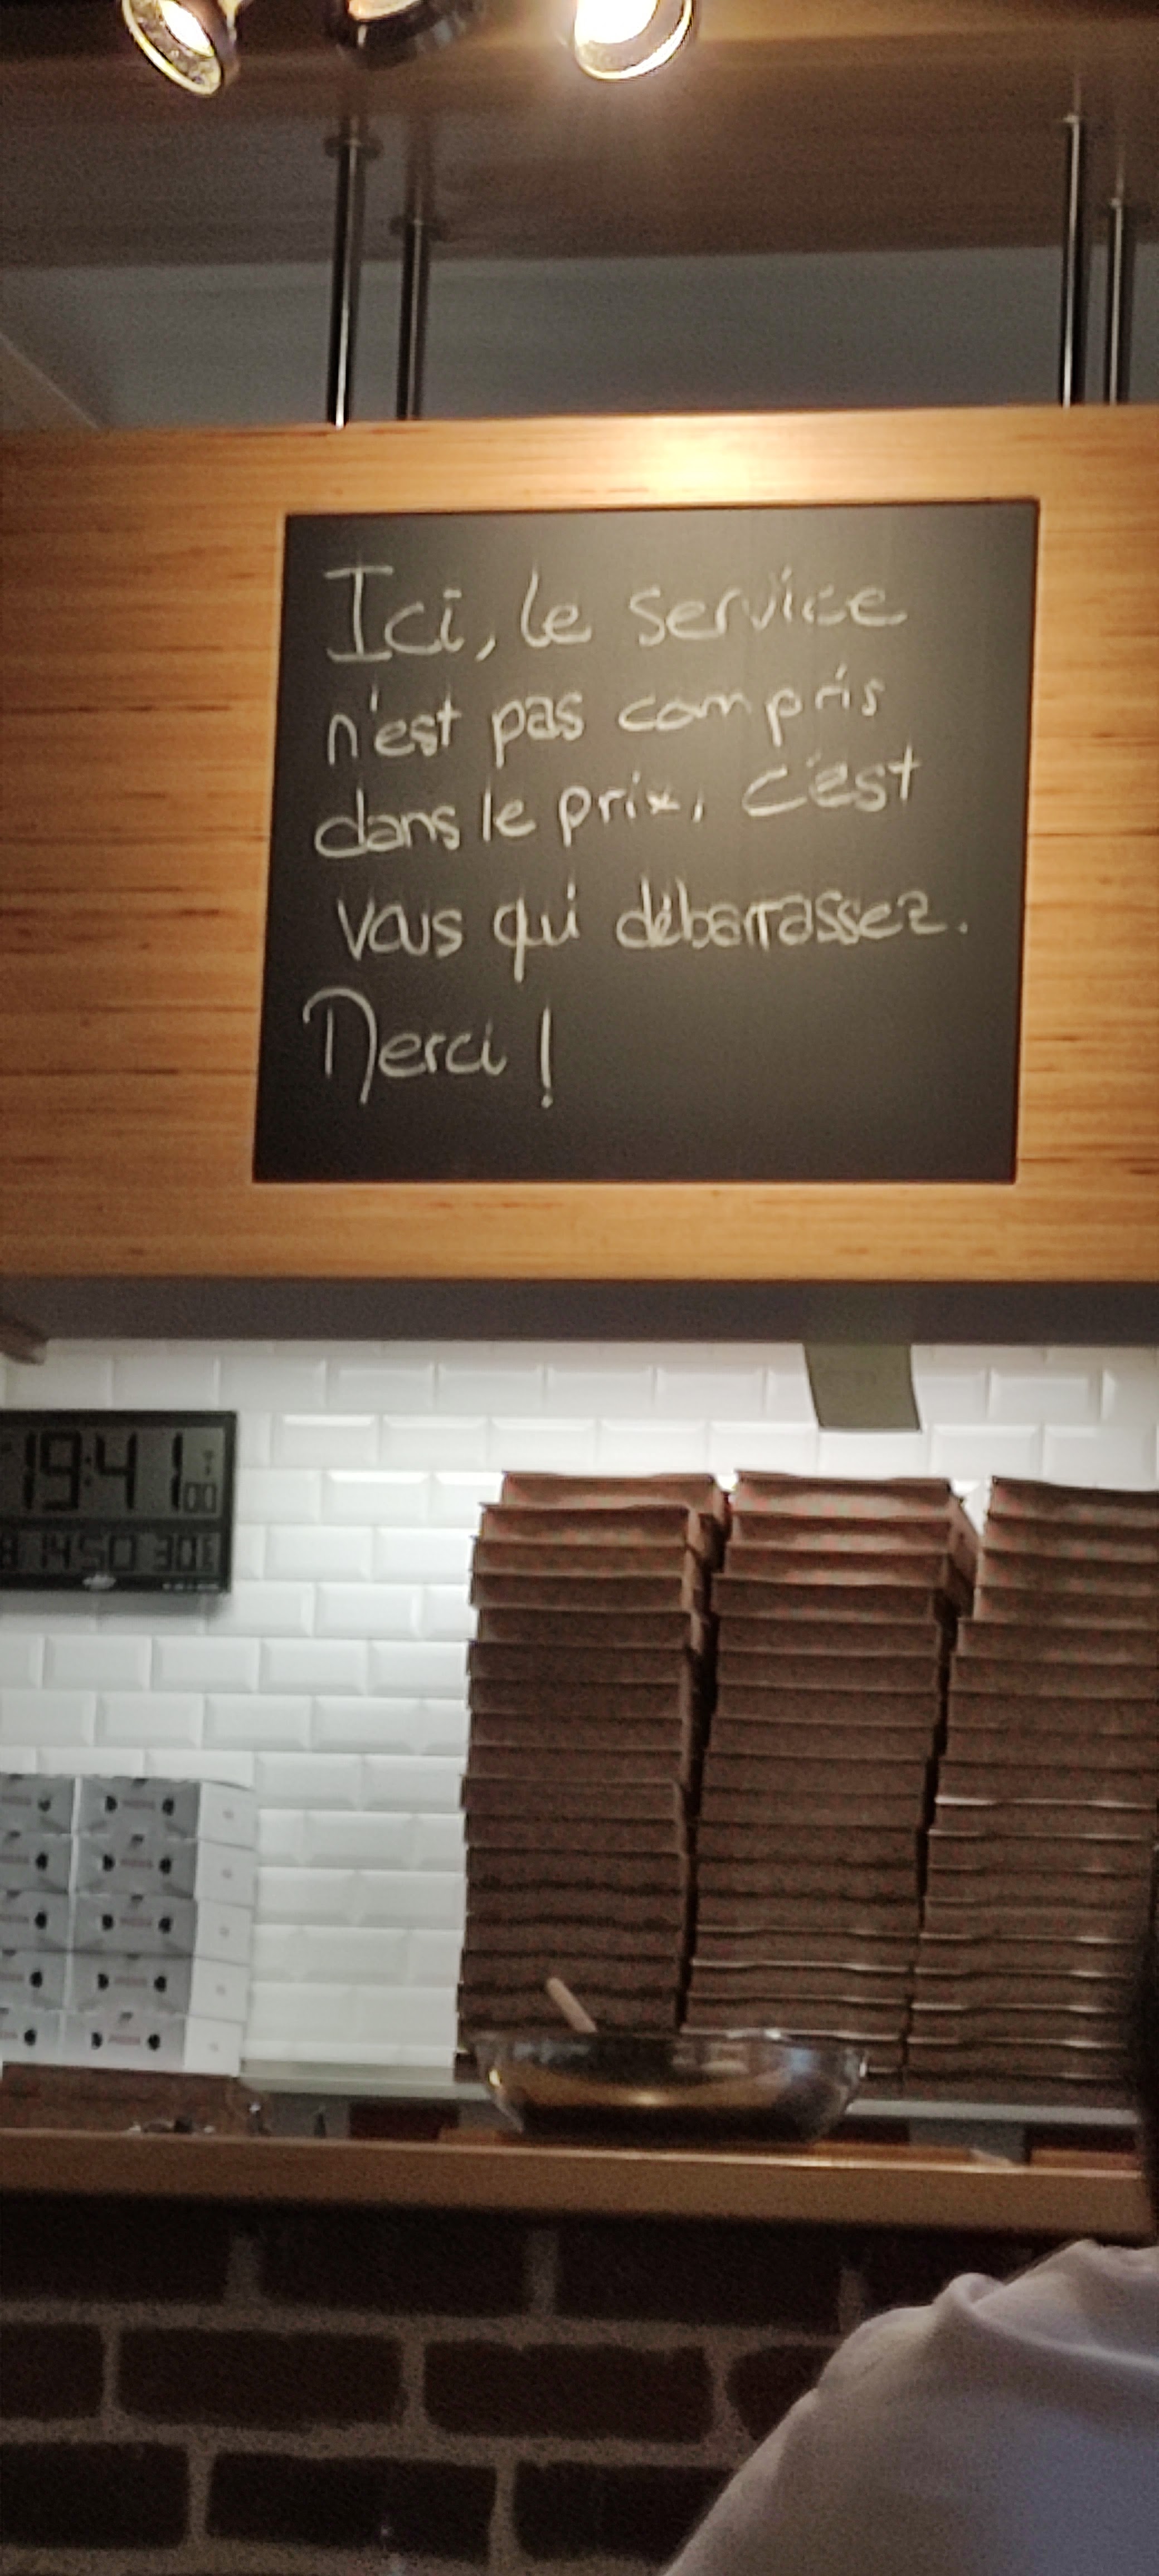 Ici, le service
n'est pas compris
dans le prix, c'est
vous qui débarrassez.
Merci !
19:41 00